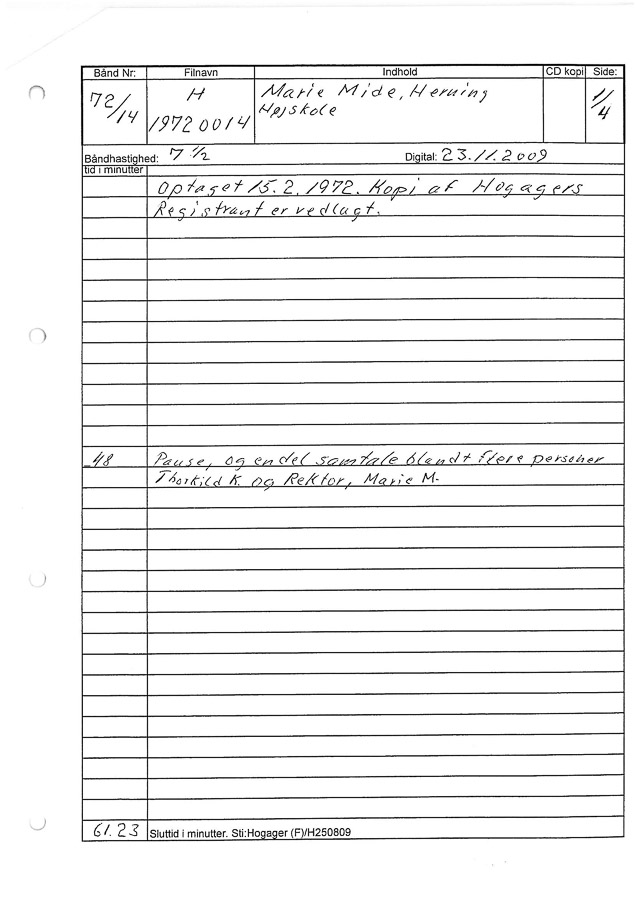 Bånd Nr: Filnavn Indhold CD kopi Side:
72/14 H 19720014 Marie Mide, Herning 1/4
Højskole
Båndhastighed: 7 1/2 Digital: 23.11.2009
tid i minutter
Optaget 15.2.1972. Kopi af Hogagers
Registrant er vedlagt.
48 Pause, og endel samtale blandt flere personer
Thorkild K. og Rektor, Marie M.
61.23 Sluttid i minutter. Sti:Hogager (F)/H250809